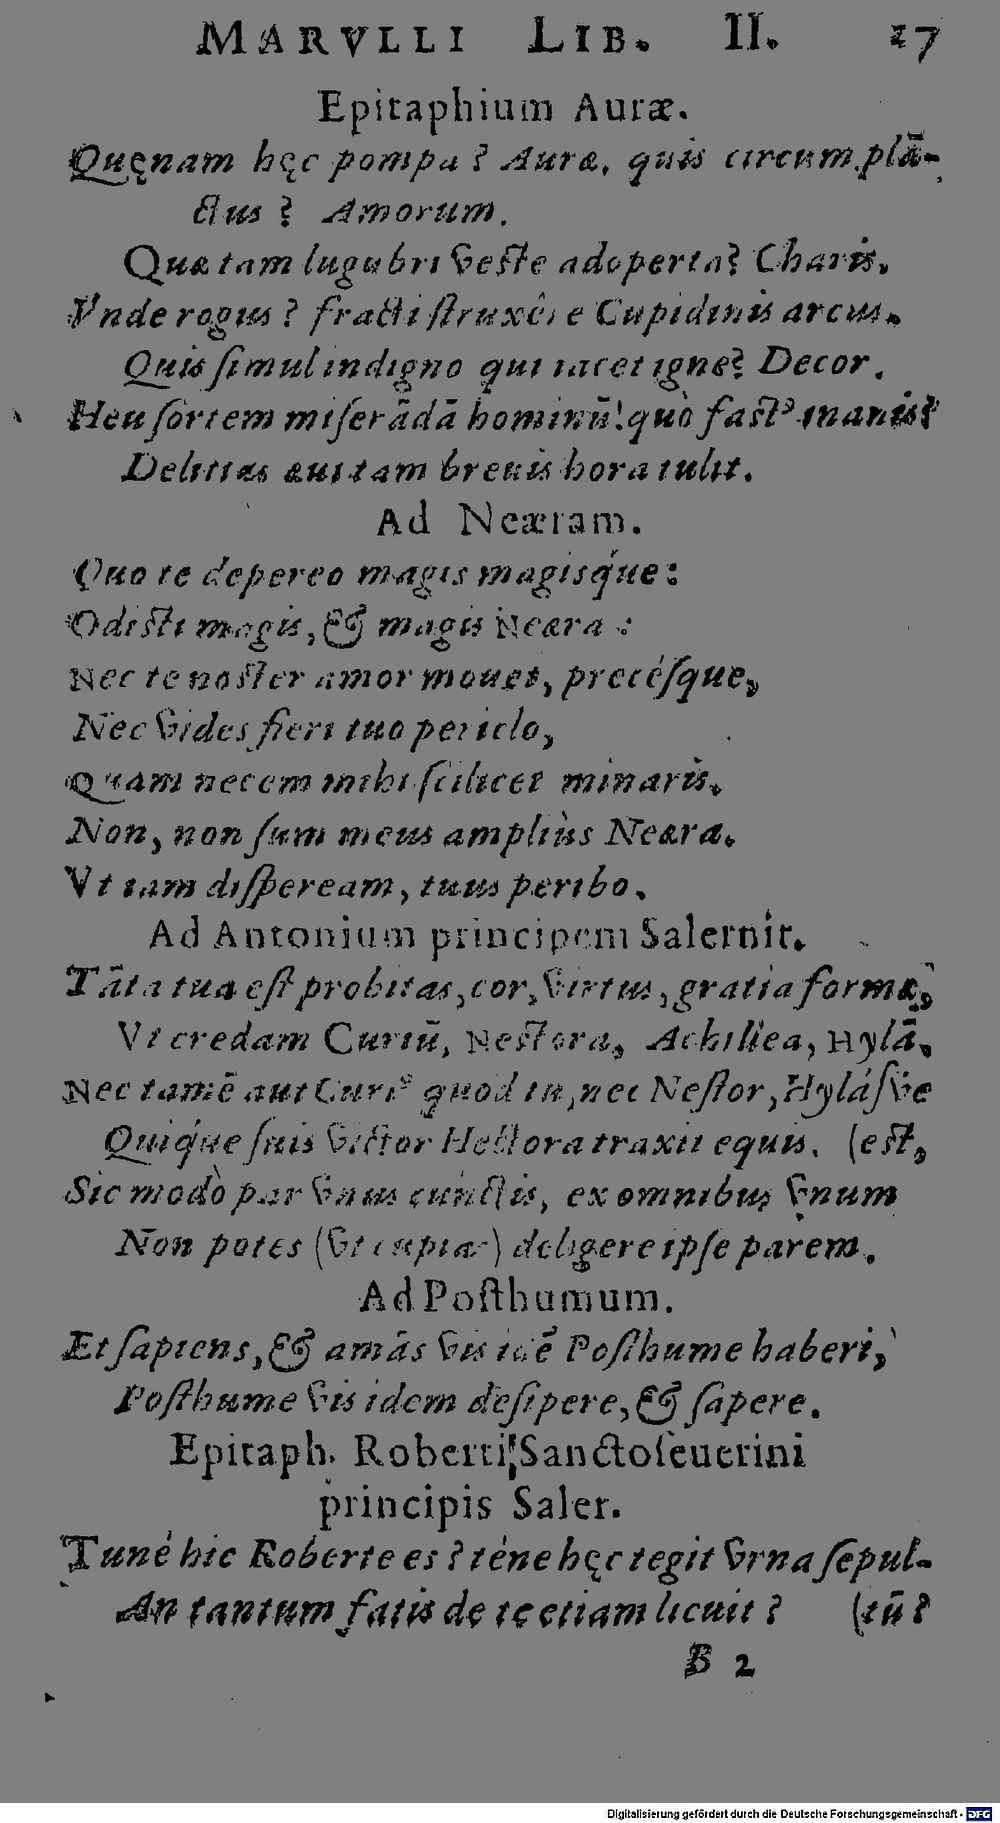 MARVLLI LIB. II. 27
Epitaphium Auræ.
Quęnam hęc pompa? Auræ. quis circum plā-
ctus? Amorum.
Quæ tam lugubri veste adoperta? Charis.
Vnde rogus? fracti struxêre Cupidinis arcus.
Quis simul indigno qui iacet igne? Decor.
Heu sortem miserādā hominū! quò fastꝰ inanis?
Delitias æui tam breuis hora tulit.
Ad Neæram.
Quo te depereo magis magisq́ue:
Odisti magis, & magis Neæra:
Nec te noster amor mouet, precésque,
Nec vides fieri tuo periclo,
Quam necem mihi scilicet minaris.
Non, non sum meus ampliùs Neæra.
Vt iam dispeream, tuus peribo.
Ad Antonium principem Salernit.
Tāta tua est probitas, cor, virtus, gratia formæ,
Vt credam Curiū, Nestora, Achillea, Hylā.
Nec tamē aut Curiꝰ quod tu, nec Nestor, Hylásve
Quiq́ue suis victor Hectora traxit equis. (est,
Sic modò par vnus cunctis, ex omnibus vnum
Non potes (vt cupias) deligere ipse parem.
Ad Posthumum.
Et sapiens, & amās vis idē Posthume haberi,
Posthume vis idem desipere, & sapere.
Epitaph. Roberti Sanctoseuerini
principis Saler.
Tuné hic Roberte es? téne hęc tegit vrna sepul-
An tantum fatis de te etiam licuit? (tū?
B 2
Digitalisierung gefördert durch die Deutsche Forschungsgemeinschaft - DFG